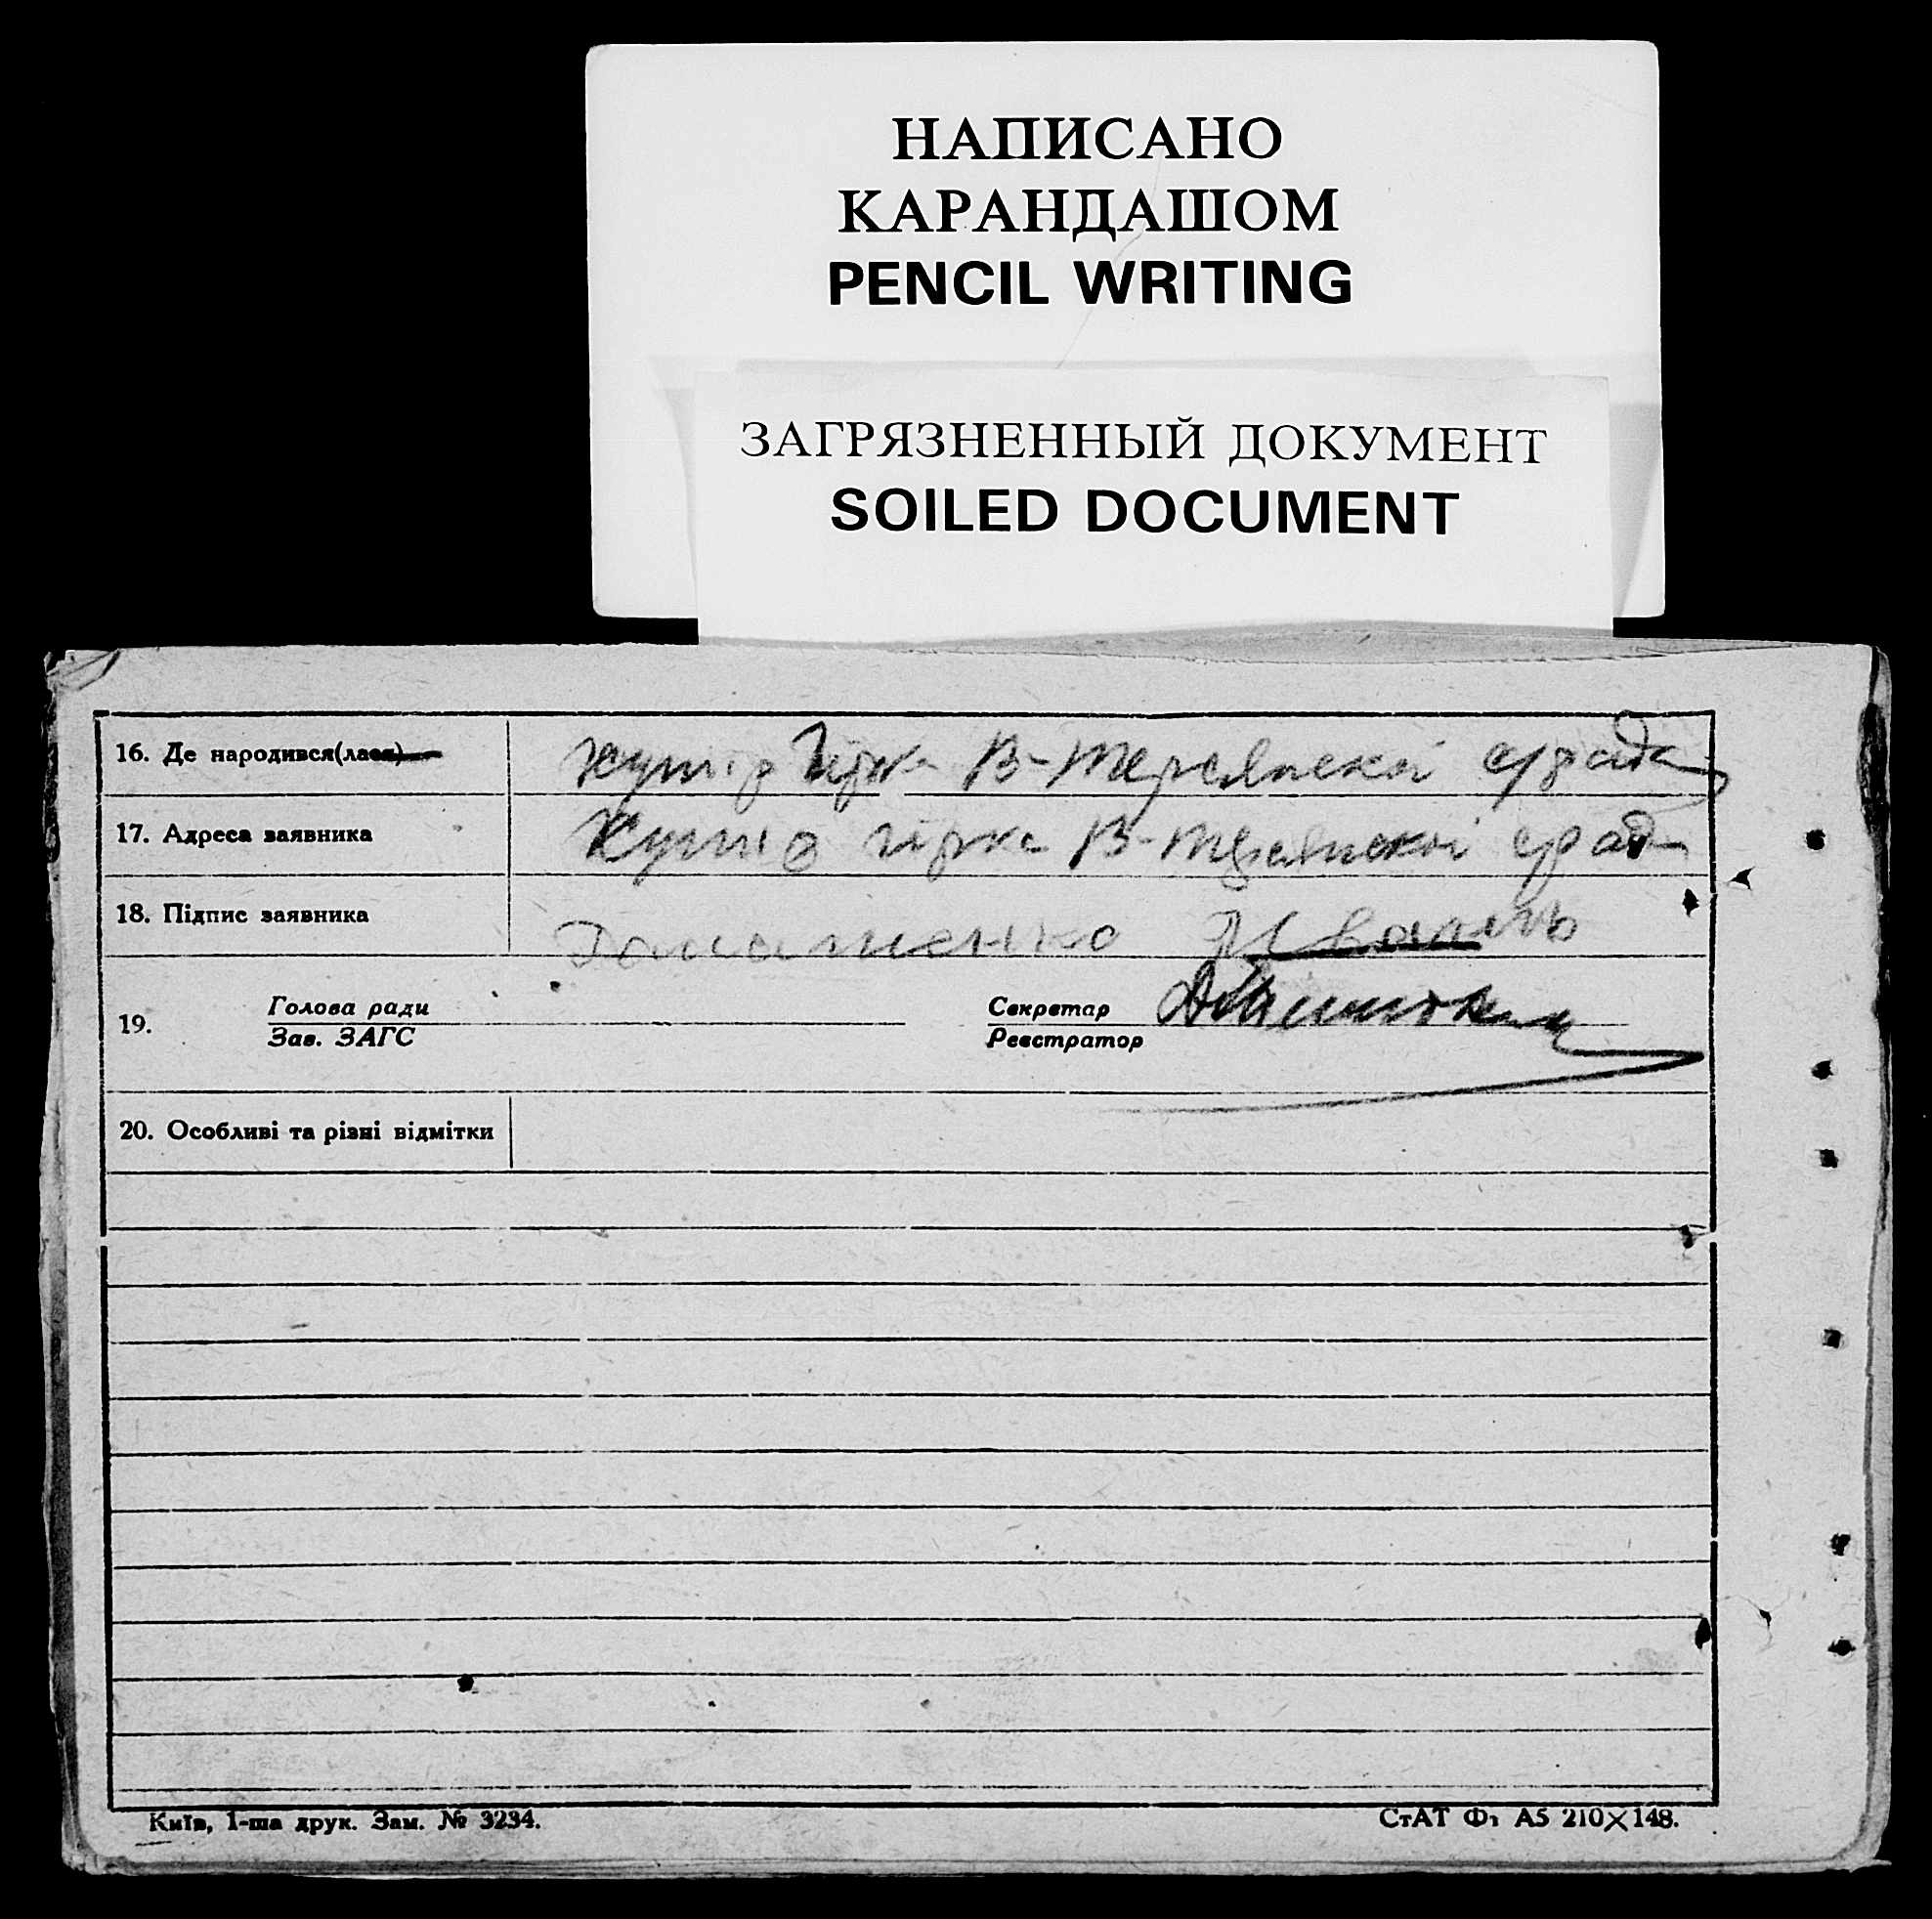 НАПИСАНО
КАРАНДАШОМ
PENCIL WRITING
ЗАГРЯЗНЕННЫЙ ДОКУМЕНТ
SOILED DOCUMENT
16. Де народився(лася) хутір гірка
17. Адреса заявника Хутір гірка
18. Підпис заявника
19. Голова ради Секретар
Зав. ЗАГС Реєстратор
20. Особливі та різні відмітки
Київ, 1-ша друк. Зам. № 3234. СтАТ Ф₁ А5 210×148.